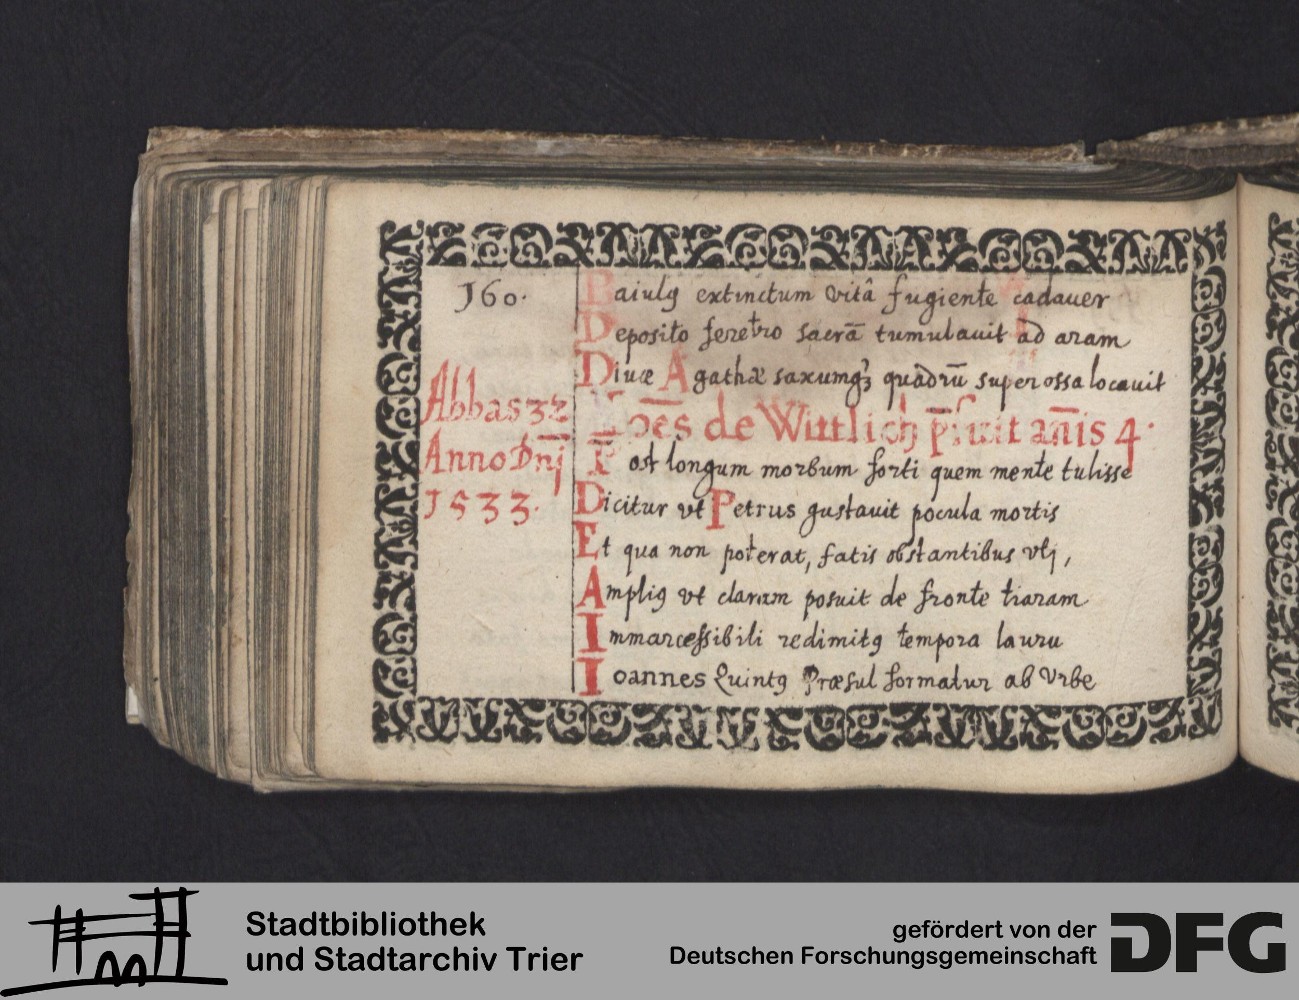 160.
Baiulꝯ extinctum vitâ fugiente cadauer
Deposito feretro sacrā tumulauit ad aram
Diuæ Agathæ saxumqꝫ quadrū super ossa locauit
Abbas 32
Anno Dn̄j
1533.
Joēs de Wittlich p̄fuit an̄is 4.
Post longum morbum forti quem mente tulisse
Dicitur vt Petrus gustauit pocula mortis
Et qua non poterat, fatis obstantibus vtj,
Ampliꝯ vt claram posuit de fronte tiaram
Immarcessibili redimitꝯ tempora lauru
Ioannes Quintꝯ Præsul formatur ab Vrbe
Stadtbibliothek
und Stadtarchiv Trier
gefördert von der
Deutschen Forschungsgemeinschaft
DFG